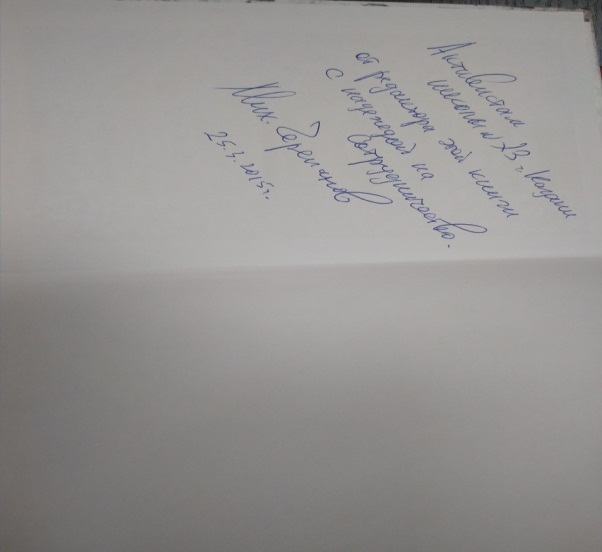 Активистам
школы № 23 г. Казани
от редактора этой книги
с надеждой на
сотрудничество.
Мих. Черепанов
25.3.2015 г.